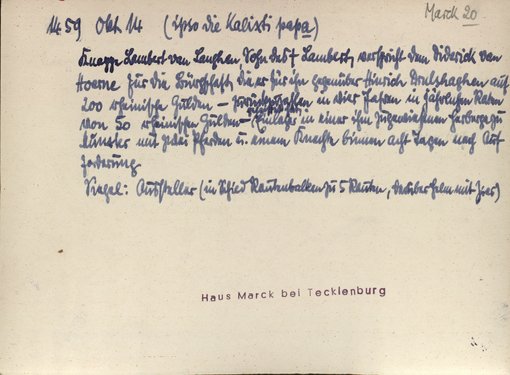 Marck 20
1459 Okt 14 (ipso die Kalixti papa)
Knappe Lambert van Langhen, Sohn des † Lambert, verspricht dem Diderick van
Hoerne für die Bürgschaft, die er für ihn gegenüber Hinrich auf
200 rheinische Gulden – in vier Jahren in jährlichen Raten
von 50 rheinischen Gulden – Einlager in einer ihm zugewiesenen Herberge zu
Munster mit zwei Pferden u. einem Knechte binnen acht Tagen nach Auf
forderung
Siegel: Aussteller (in Schild Rautenbalken zu 5 Rauten, darüber Helm mit Zier)
Haus Marck bei Tecklenburg